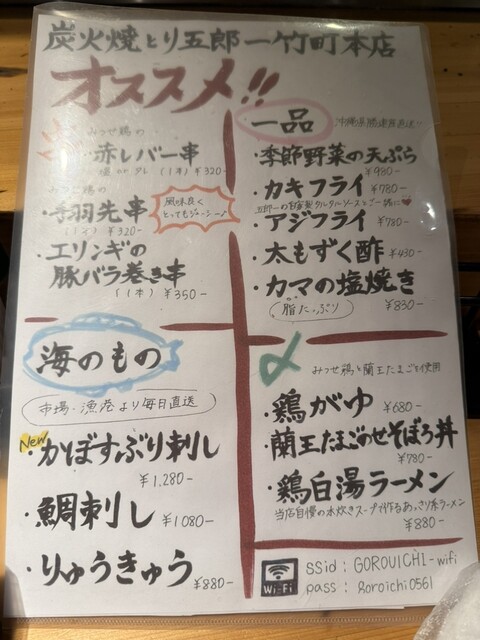 炭火焼とり五郎一竹町本店
オススメ!!
みつせ鶏の
・赤レバー串
塩 or タレ (1本) ¥320-
みつせ鶏の
手羽先串
(1本) ¥320-
風味良く
とってもジューシー♪
・エリンギの
豚バラ巻き串
(1本) ¥350-
一品
・季節野菜の天ぷら
¥980-
・カキフライ ¥780-
五郎一の自家製タルタルソースとご一緒に♥
・アジフライ ¥780-
・太もずく酢 ¥430-
・カマの塩焼き
脂たっぷり
¥830-
海のもの
市場・漁港より毎日直送
New
・かぼすぶり刺し
¥1,280-
・鯛刺し ¥1080-
・りゅうきゅう
¥880-
〆
みつせ鶏と蘭王たまごを使用
・鶏がゆ ¥680-
・蘭王たまごのせそぼろ丼
¥780-
・鶏白湯ラーメン
当店自慢の水炊きスープで作るあっさり系ラーメン
¥880-
Wi-Fi
ssid : GOROUICHI-wifi
pass : Goroichi0561